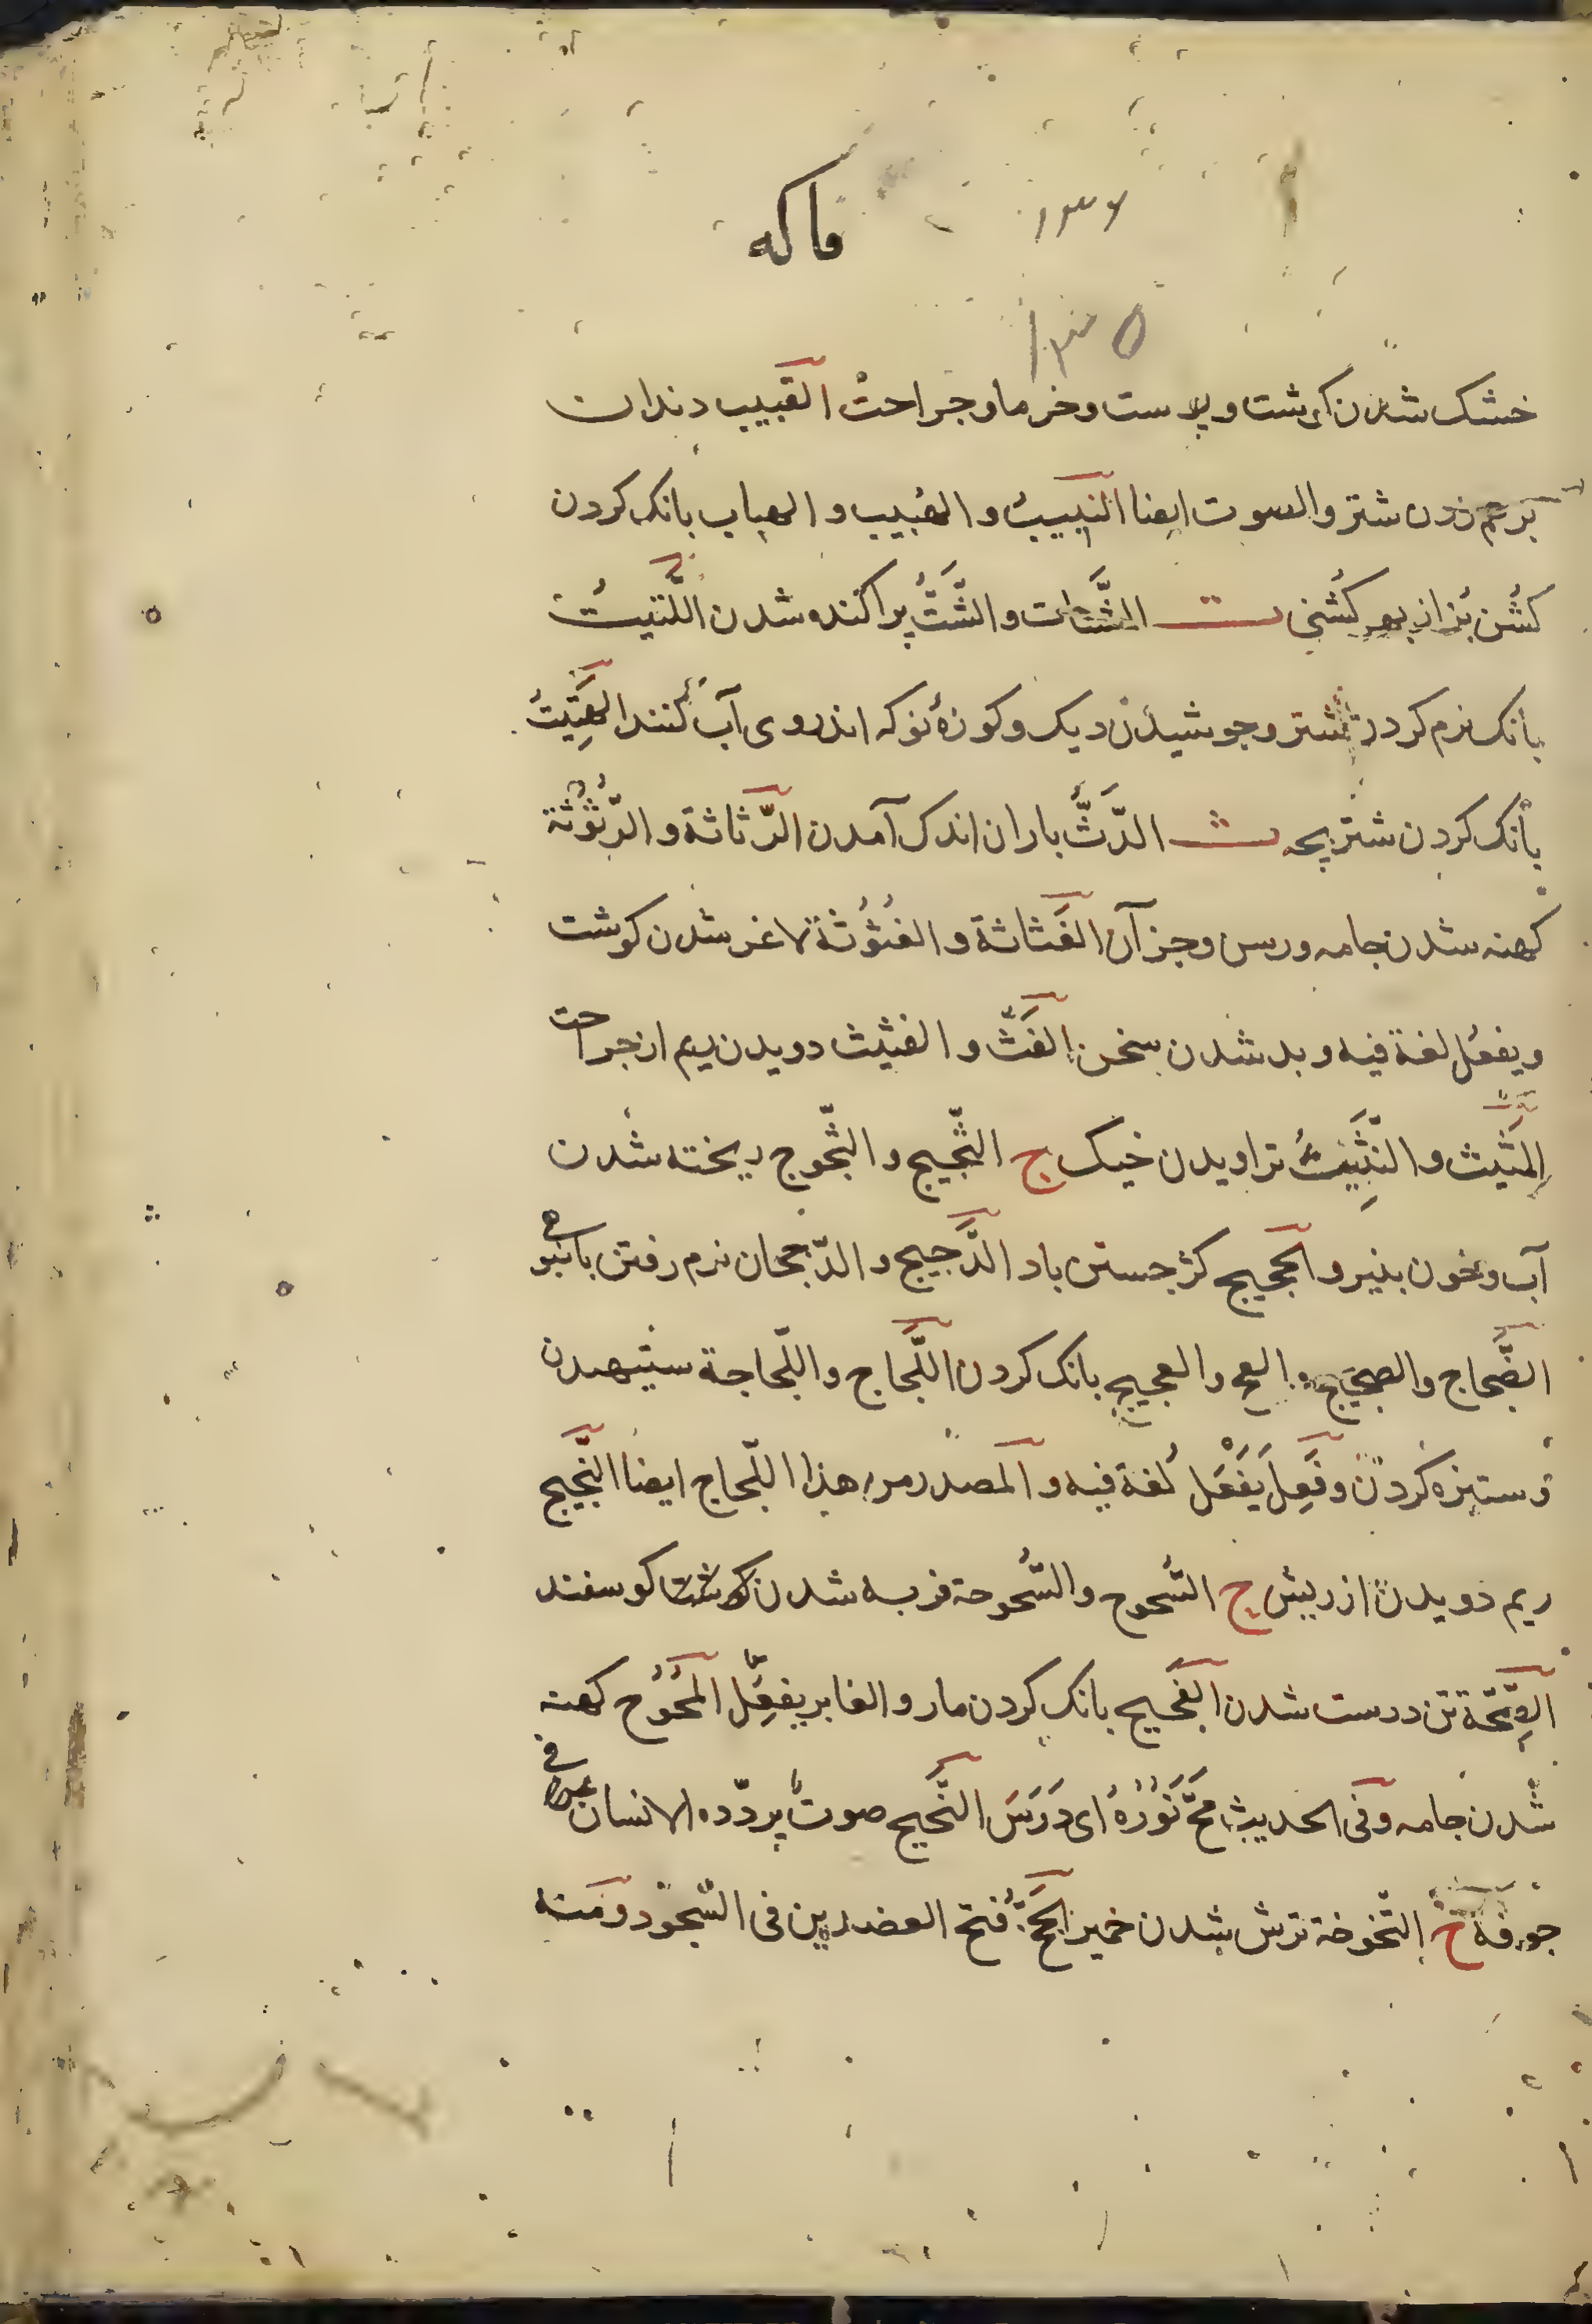 ۱۳۶
فاکه
۱۳۵
خشک شدن کوشت و پوست و خرما و جراحت القبیب دندان
برهم زدن شتر والصوت ایضا النبیب و الهبیب و الهباب بانک کردن
کُشن بز از بهر کُشنی ت الشَّتات و الشَّتُّ پراکنده شدن اللَّتیتُ
بانک نرم کردن شتر و جوشیدن دیک و کوزهٔ نو که اندروی آب کنند الهَتِیتُ
بانک کردن شتر بچه ث الدَّثُّ باران اندک آمدن الرَّثاثة و الرُّثُوثة
کهنه شدن جامه و رسن و جز آن الغَثاثة و الغُثُوثة لاغر شدن کوشت
و یفعَل لغة فیه و بد شدن سخن الغَثّ و الغثیث دویدن ریم از جراحت
المَثیث و النَّثِیثُ تراویدن خیک ج الثَّجیج و الثُّجوج ریخته شدن
آب و خون بنیرو الحجیج کژ جستن باد الدَّجیج و الدّججان نرم رفتن بانبوه
الضَّجاج و الضجیج و العج و العجیج بانک کردن اللَّجاج و اللّجاجة ستیهیدن
و ستیزه کردن وفَعِل یَفْعَل لُغة فیه و المصدر من هذا اللّجاج ایضا النَّجیج
ریم دویدن از ریش ح السُّحوح و السُّحوحة فربه شدن کوسفند
الصِّحّة تن درست شدن الفَحیح بانک کردن مار و الغابر یفعِل المُحُوح کهنه
شدن جامه و فی الحدیث مَحَّ نَوْرُهُ ای دَرَسَ النَّحیح صوتٌ یردّده الانسان فی
جوفه خ التّخوخة ترش شدن خمیر الجَخُّ فتح العضدین فی السّجود و منه